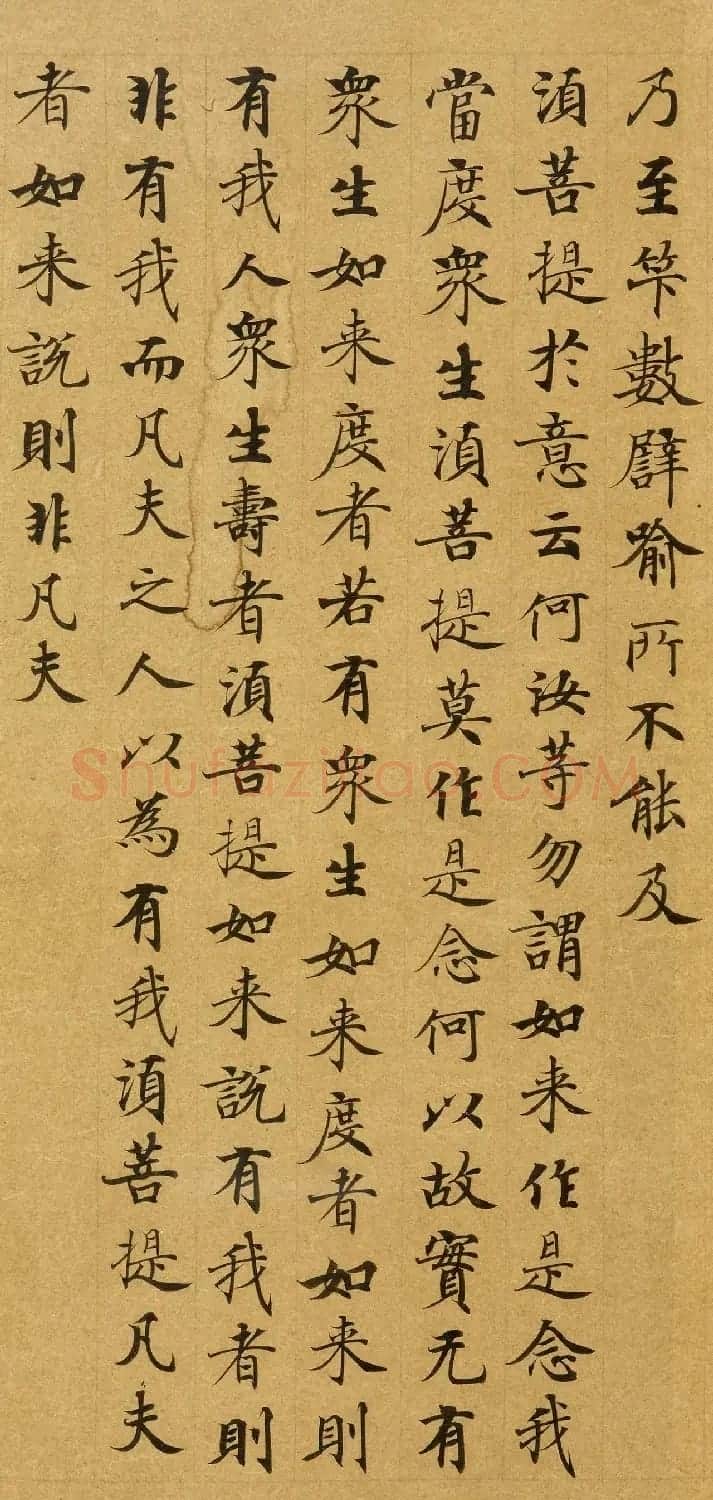 乃至筭數譬喻所不能及
湏菩提於意云何汝等勿謂如来作是念我
當度衆生湏菩提莫作是念何以故實无有
衆生如来度者若有衆生如来度者如来則
有我人衆生壽者湏菩提如来説有我者則
非有我而凡夫之人以為有我湏菩提凡夫
者如来説則非凡夫
Shufaziliao.COM